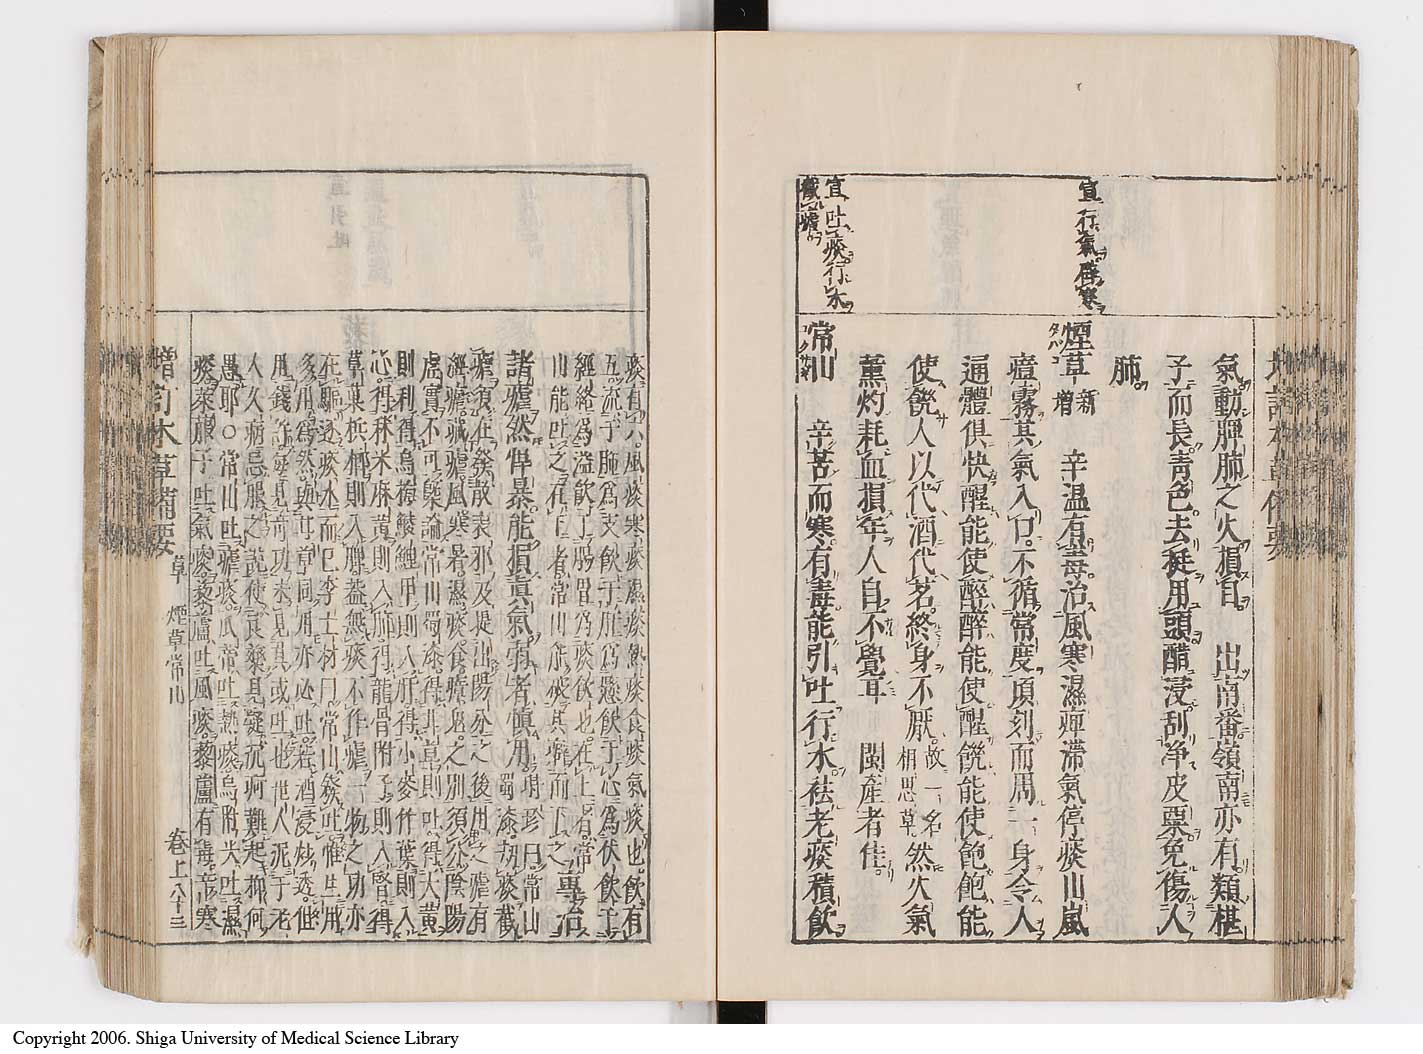 氣動脾肺之火損目 出南番嶺南亦有類椹
子而長靑色去梃用頭醋浸刮淨皮粟免傷人
肺
宣行氣辟寒
煙草 新增 辛溫有毒治風寒濕痺滯氣停痰山嵐
タバコ
瘴霧其氣入口不循常度頃刻而周一身令人
通體俱快醒能使醉醉能使醒饑能使飽飽能
使饑人以代酒代茗終身不厭故一名相思草然火氣
薰灼耗血損年人自不覺耳 閩產者佳
宣吐痰行水
截瘧
常山 辛苦而寒有毒能引吐行水祛老痰積飮
痰有六風痰寒痰濕痰熱痰食痰氣痰也飮有
五流于肺爲支飮于肝爲懸飮于心爲伏飮于
經絡爲溢飮于腸胃爲痰飮也在上者常
山能吐之在下者常山能破其癖而下之 專治
諸瘧然悍暴能損眞氣弱者愼用 蜀漆功
瘧須在發散表邪及提出陽分之後用之瘧有
虛實不可槩論常山蜀漆得甘草則吐得大黃
則利得烏梅鯪鯉甲則入肝得小麥竹葉則入
心得秫米麻黃則入肺得龍骨附子則入腎得
草果檳榔則入脾蓋無痰不作瘧一物之功亦
在驅逐痰水而已李士材曰常山發吐惟生用
多用爲然與甘草同用亦必吐若酒浸炒透但
用錢許每見奇功未見其或吐也世人泥于老
人久病忌服之說使良藥見疑沉疴難起抑何
愚耶○常山吐瘧痰瓜蒂吐熱痰烏附尖吐濕
痰萊菔子吐氣痰藜蘆吐風痰藜蘆有毒辛寒
增訂本草備要 草 煙草常山 卷上八十三
Copyright 2006. Shiga University of Medical Science Library